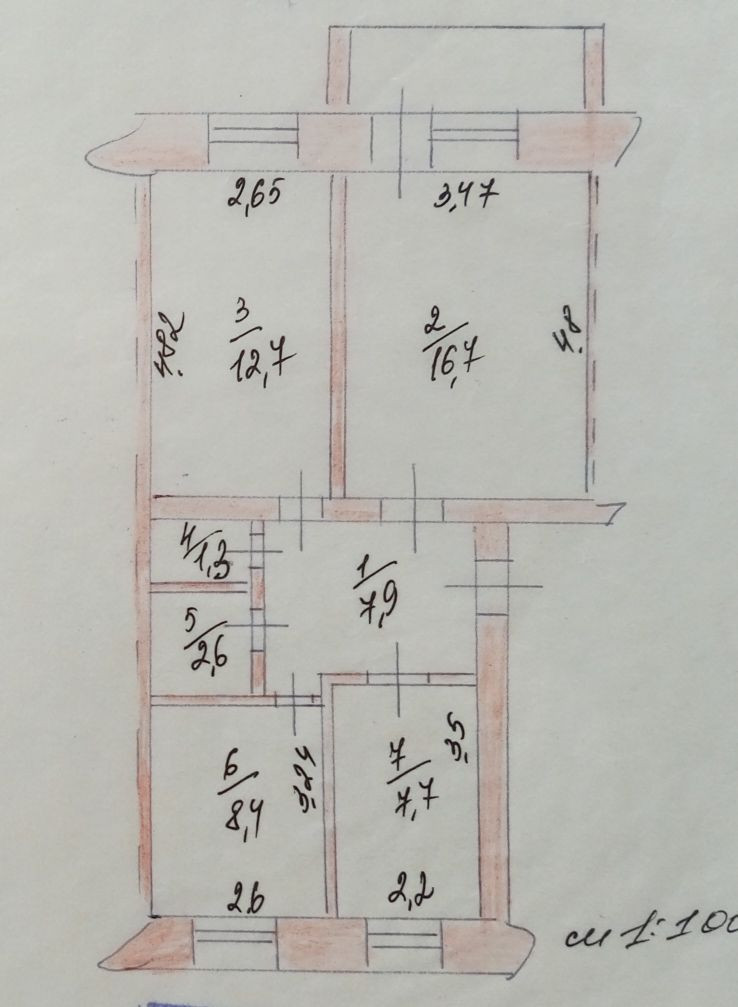 2,65
3,47
3/12,7
2/16,7
4,82
4,8
4/1,3
1/7,9
5/2,6
3,5
6/8,4
3,24
7/7,7
2,6
2,2
м 1:100